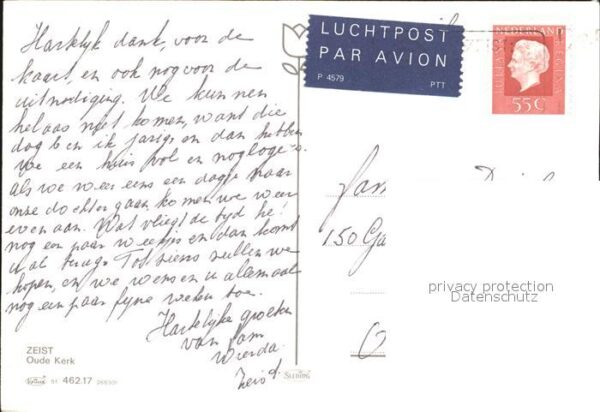 Hartelyk dank, voor de
kaart, en ook nog voor de
uitnodiging. We kunnen
helaas niet komen, want die
dag ben ik jarig, en dan hebben
we een huis vol en nog loge's.
als we weer eens een dagje naar
onze dochter gaan komen we weer
even aan. Wat vliegt de tyd he!
nog een paar weekjes en dan komt
u al terug. Tot ziens zullen we
hopen, en we wensen u allemaal
nog een paar fyne weken toe.
Hartelyke groeten
van fam
Wierda
Zeist.
ZEIST
Oude Kerk
51 462.17
LUCHTPOST
PAR AVION
P 4579 PTT
NEDERLAND
JULIANA REGINA
55C
Fam
150
privacy protection
Datenschutz